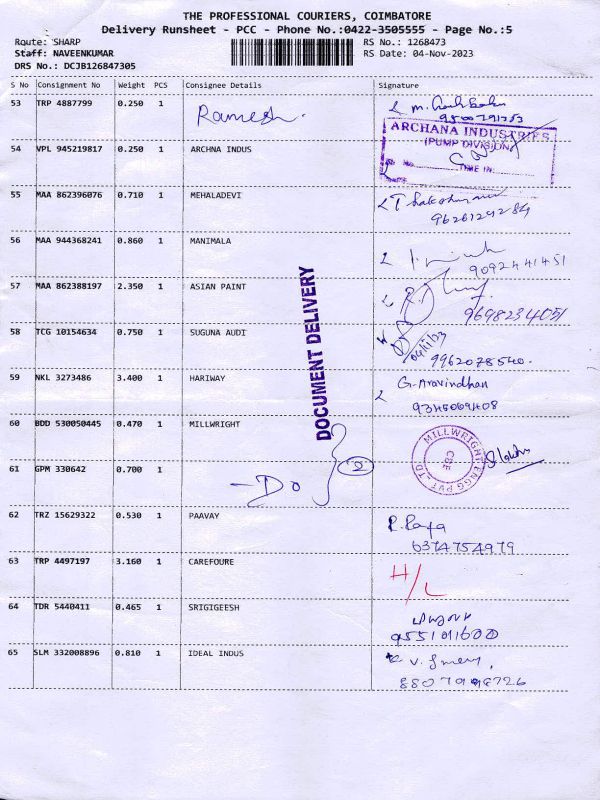 THE PROFESSIONAL COURIERS, COIMBATORE
Delivery Runsheet - PCC - Phone No.:0422-3505555 - Page No.:5
Route: SHARP RS No.: 1268473
Staff: NAVEENKUMAR RS Date: 04-Nov-2023
DRS No.: DCJB126847305
S No Consignment No Weight PCS Consignee Details Signature
53 TRP 4887799 0.250 1 Ramesh.
ARCHANA INDUSTRIES
(PUMP DIVISION)
TIME IN:
54 VPL 945219817 0.250 1 ARCHNA INDUS
55 MAA 862396076 0.710 1 MEHALADEVI
9626129284
56 MAA 944368241 0.860 1 MANIMALA
9092441451
57 MAA 862388197 2.350 1 ASIAN PAINT
9698234051
58 TCG 10154634 0.750 1 SUGUNA AUDI
9962078540.
DOCUMENT DELIVERY
59 NKL 3273486 3.400 1 HARIWAY G. Aravindhan
9345069408
60 BDD 530050445 0.470 1 MILLWRIGHT
MILLWRIGHT ENGG PVT - LTD
CBE
61 GPM 330642 0.700 1 - Do 2
62 TRZ 15629322 0.530 1 PAAVAY
6374754979
63 TRP 4497197 3.160 1 CAREFOURE H/L
64 TDR 5440411 0.465 1 SRIGIGEESH
65 SLM 332008896 0.810 1 IDEAL INDUS